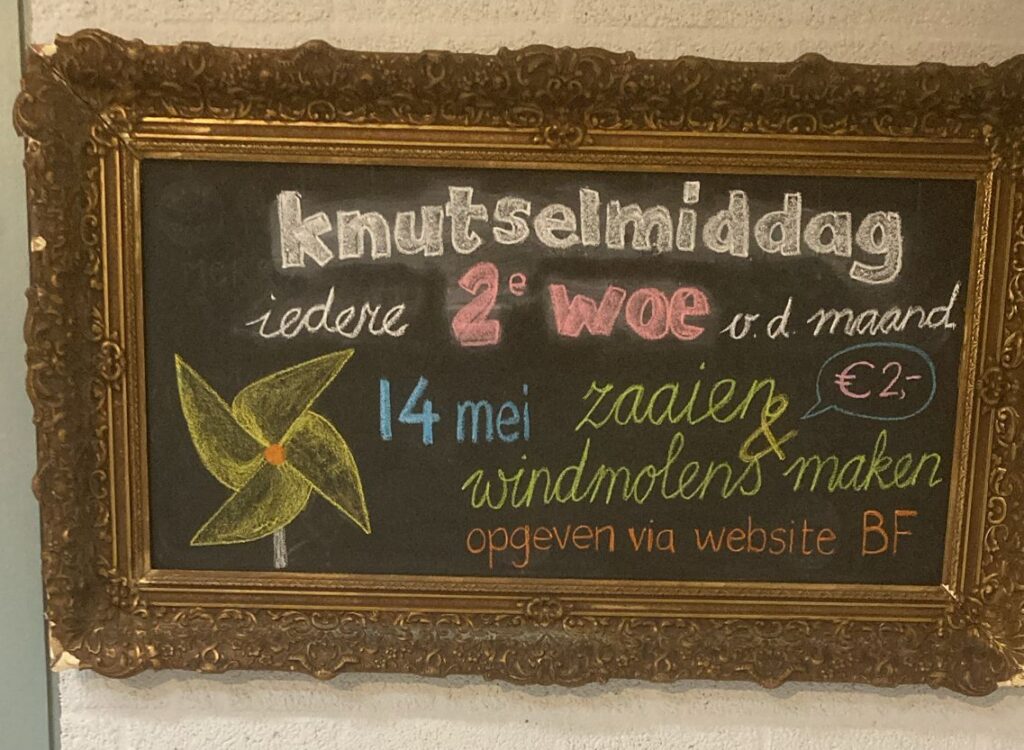 knutselmiddag
iedere 2e woe v.d. maand
14 mei zaaien & €2,-
windmolens maken
opgeven via website BF